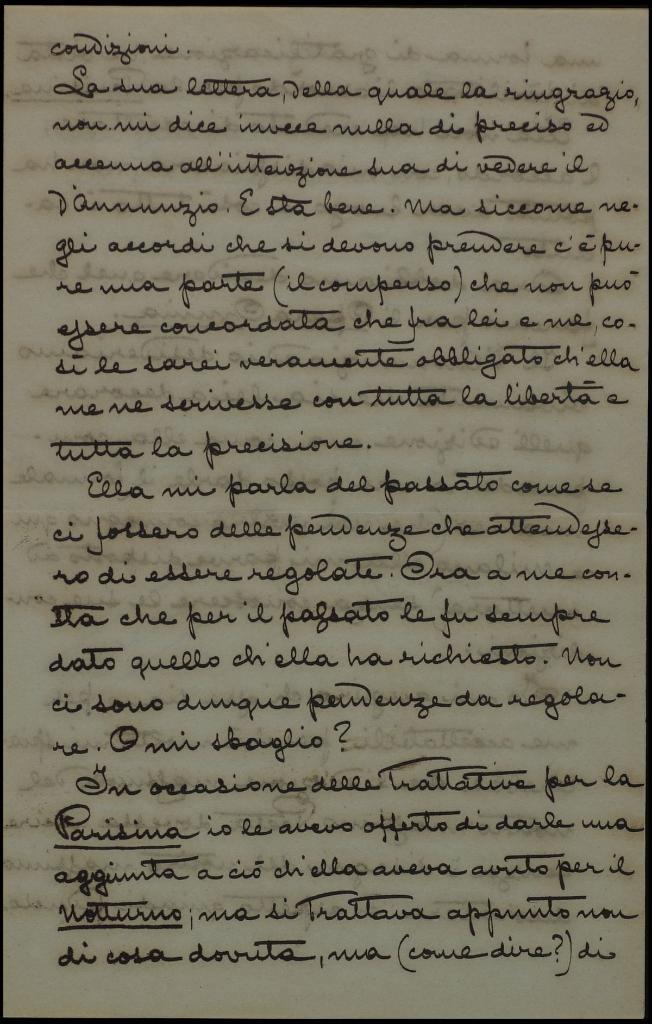 condizioni.
La sua lettera, della quale la ringrazio,
non mi dice invece nulla di preciso ed
accenna all'intenzione sua di vedere il
D'Annunzio. E sta bene. Ma siccome ne-
gli accordi che si devono prendere c'è pu-
re una parte (il compenso) che non può
essere concordata che fra lei e me, co-
sì le sarei veramente obbligato ch'ella
me ne scrivesse con tutta la libertà e
tutta la precisione.
Ella mi parla del passato come se
ci fossero delle pendenze che attendesse-
ro di essere regolate. Ora a me con-
sta che per il passato le fu sempre
dato quello ch'ella ha richiesto. Non
ci sono dunque pendenze da regola-
re. O mi sbaglio?
In occasione delle trattative per la
Parisina io le avevo offerto di darle una
aggiunta a ciò ch'ella aveva avuto per il
Notturno; ma si trattava appunto non
di cosa dovuta, ma (come dire?) di